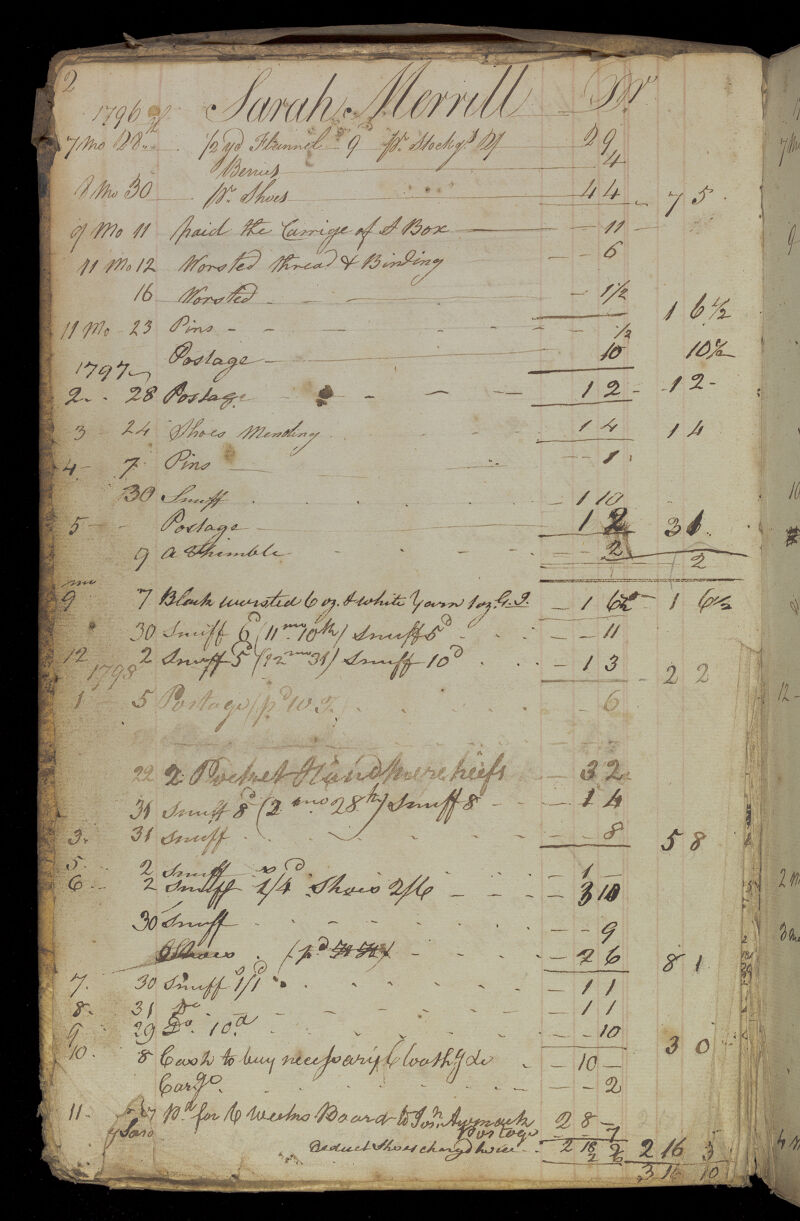 2
1796 Sarah Merrill Dr
7 Mo 28th 1/2 yd Flannel 9d pr Stockgs 2/ 2 9
Berries 4
8 Mo 30 pr Shoes 4 4 7 5
9 Mo 11 paid the Carrige of A Box 11
11 Mo 12 Worsted thread & Binding 6
16 Worsted 1 1/2 1 6 1/2
11 Mo 23 Pins 1/2
Postage 10 10 1/2
1797
2 28 Postage 1 2 1 2
3 24 Shoes Mending 1 4 1 4
4 7 Pins 1
30 Snuff 1 10
5 Postage 1 2 3 1
9 a Thimble 2 2
mo
9 7 Black worsted 6 oz & white Yarn 1 oz G. I. 1 6 1/2 1 6 1/2
30 Snuff 6d (11 mo 10th) Snuff 5d 11
12 2 Snuff 5d (12 mo 31) Snuff 10d 1 3 2 2
1798
1 5 Postage (pd W. I.) 6
22 2 Pocket Handkerchiefs 3 2
31 Snuff 8d (2 mo 28th) Snuff 8 1 4
3 31 Snuff 8 5 8
5 2 Snuff 1
6 2 Snuff 1s/4d Shoes 2/6 3 10
30 Snuff 9
Shoes (pd 2 6 8 1
7 30 Snuff 1s/1d 1 1
8 31 Do 1 1
9 29 Do 10d 10 3 0
10 8 Cash to buy necessary Cloathg &c 10
Cargo 2
11 27 Pd for 6 Weeks Board to Jon 2 8
Postage 7
deduct Shoes chargd twice 2 18 2 2 16 5
2 6 3 16 10